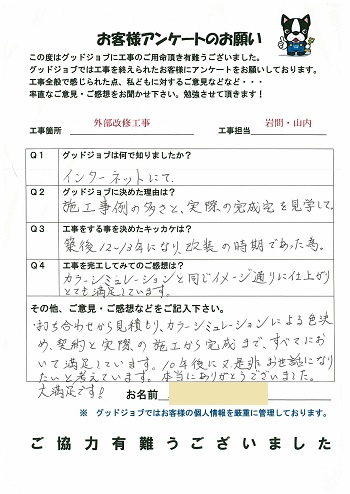 お客様アンケートのお願い
この度はグッドジョブに工事のご用命頂き有難うございました。
グッドジョブでは工事を終えられたお客様にアンケートをお願いしております。
工事全般で感じられた点、私どもに対するご意見などなど・・・
率直なご意見・ご感想をお聞かせ下さい。勉強させて頂きます！
工事箇所 外部改修工事 工事担当 岩間・山内
Q1 グッドジョブは何で知りましたか？
インターネットにて.
Q2 グッドジョブに決めた理由は？
施工事例の多さと、実際の完成宅を見学して。
Q3 工事をする事を決めたキッカケは？
築後12～13年になり、改装の時期であった為。
Q4 工事を完工してみてのご感想は？
カラーシミュレーションと同じイメージ通りに仕上がり
とても満足しています。
その他、ご意見・ご感想などをご記入下さい。
・打ち合わせから見積もり、カラーシミュレーションによる色決
め、契約と実際の施工から完成まで、すべてにお
いて満足しています。10年後に又是非お世話になり
たいと考えています。本当にありがとうございました。
大満足です！
お名前
※ グッドジョブではお客様の個人情報を厳重に管理しております。
ご協力有難うございました